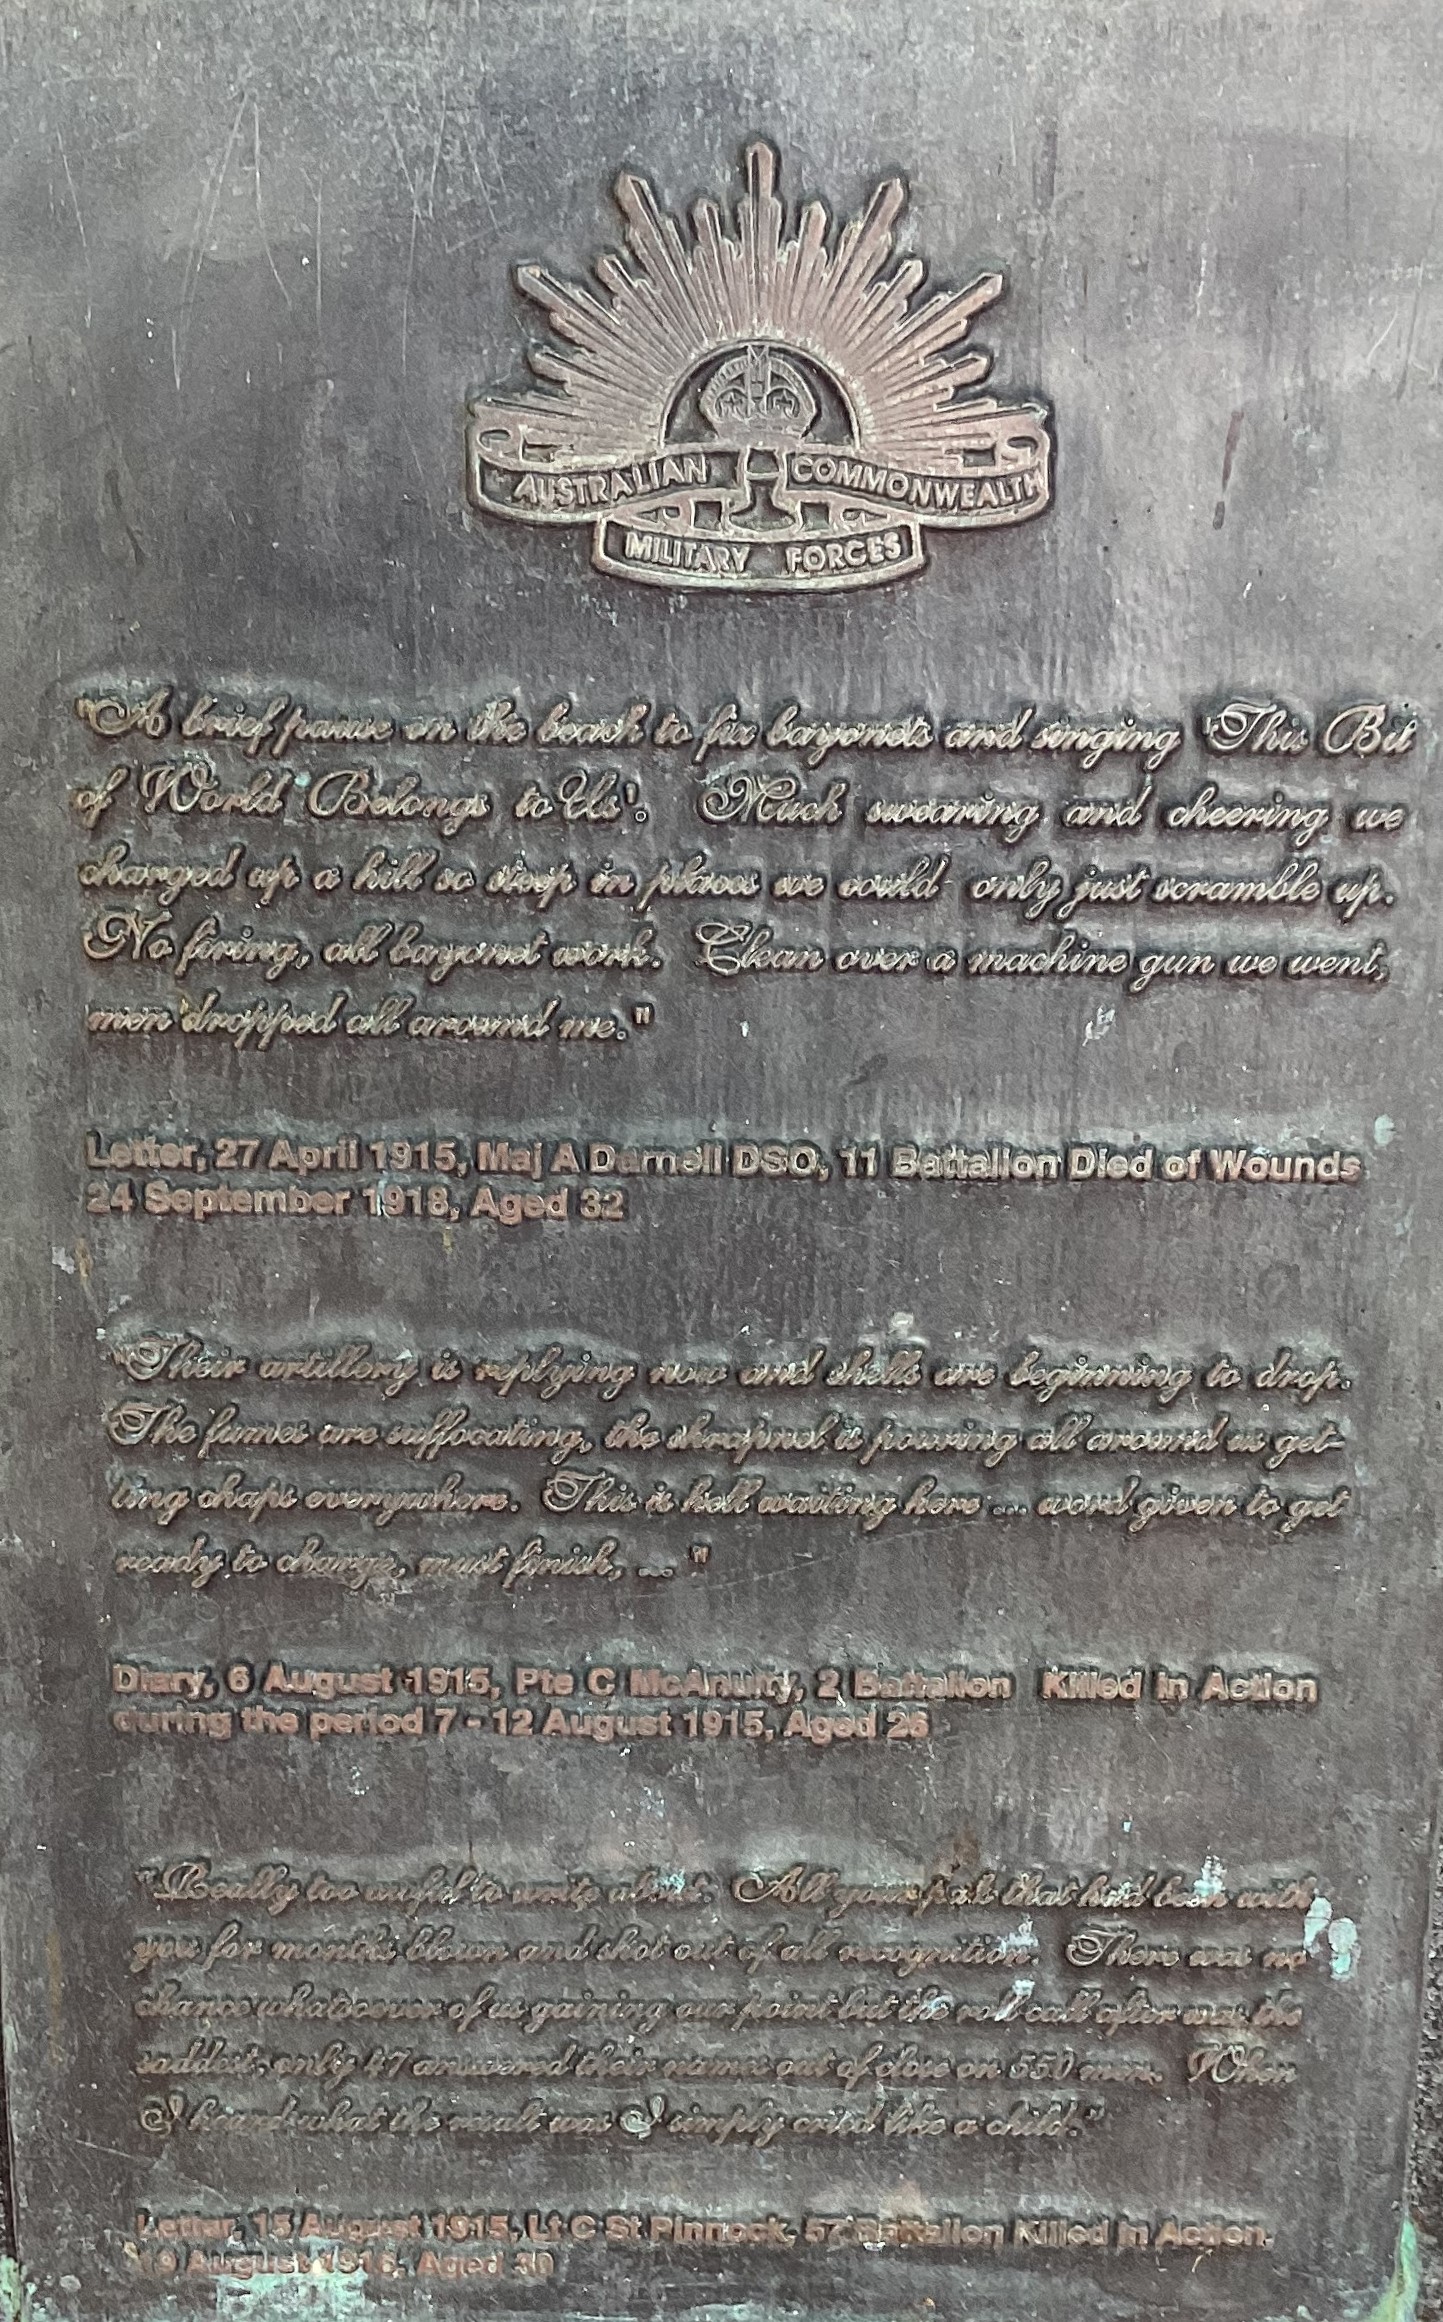 AUSTRALIAN COMMONWEALTH
MILITARY FORCES
"A brief pause on the beach to fix bayonets and singing 'This Bit
of World Belongs to Us'. Much swearing and cheering we
charged up a hill so steep in places we could only just scramble up.
No firing, all bayonet work. Clean over a machine gun we went,
men dropped all around me."
Letter, 27 April 1915, Maj A Darnell DSO, 11 Battalion Died of Wounds
24 September 1918, Aged 32
"Their artillery is replying now and shells are beginning to drop.
The fumes are suffocating, the shrapnel is pouring all around us get-
ting chaps everywhere. This is hell waiting here ... word given to get
ready to charge, must finish, ... "
Diary, 6 August 1915, Pte C McAnulty, 2 Battalion Killed in Action
during the period 7 - 12 August 1915, Aged 26
"Really too awful to write about. All your pals that had been with
you for months blown and shot out of all recognition. There was no
chance whatsoever of us gaining our point but the roll call after was the
saddest, only 47 answered their names out of close on 550 men. When
I heard what the result was I simply cried like a child."
Letter, 15 August 1915, Lt C St Pinnock, 57 Battalion Killed in Action
19 August 1916, Aged 30